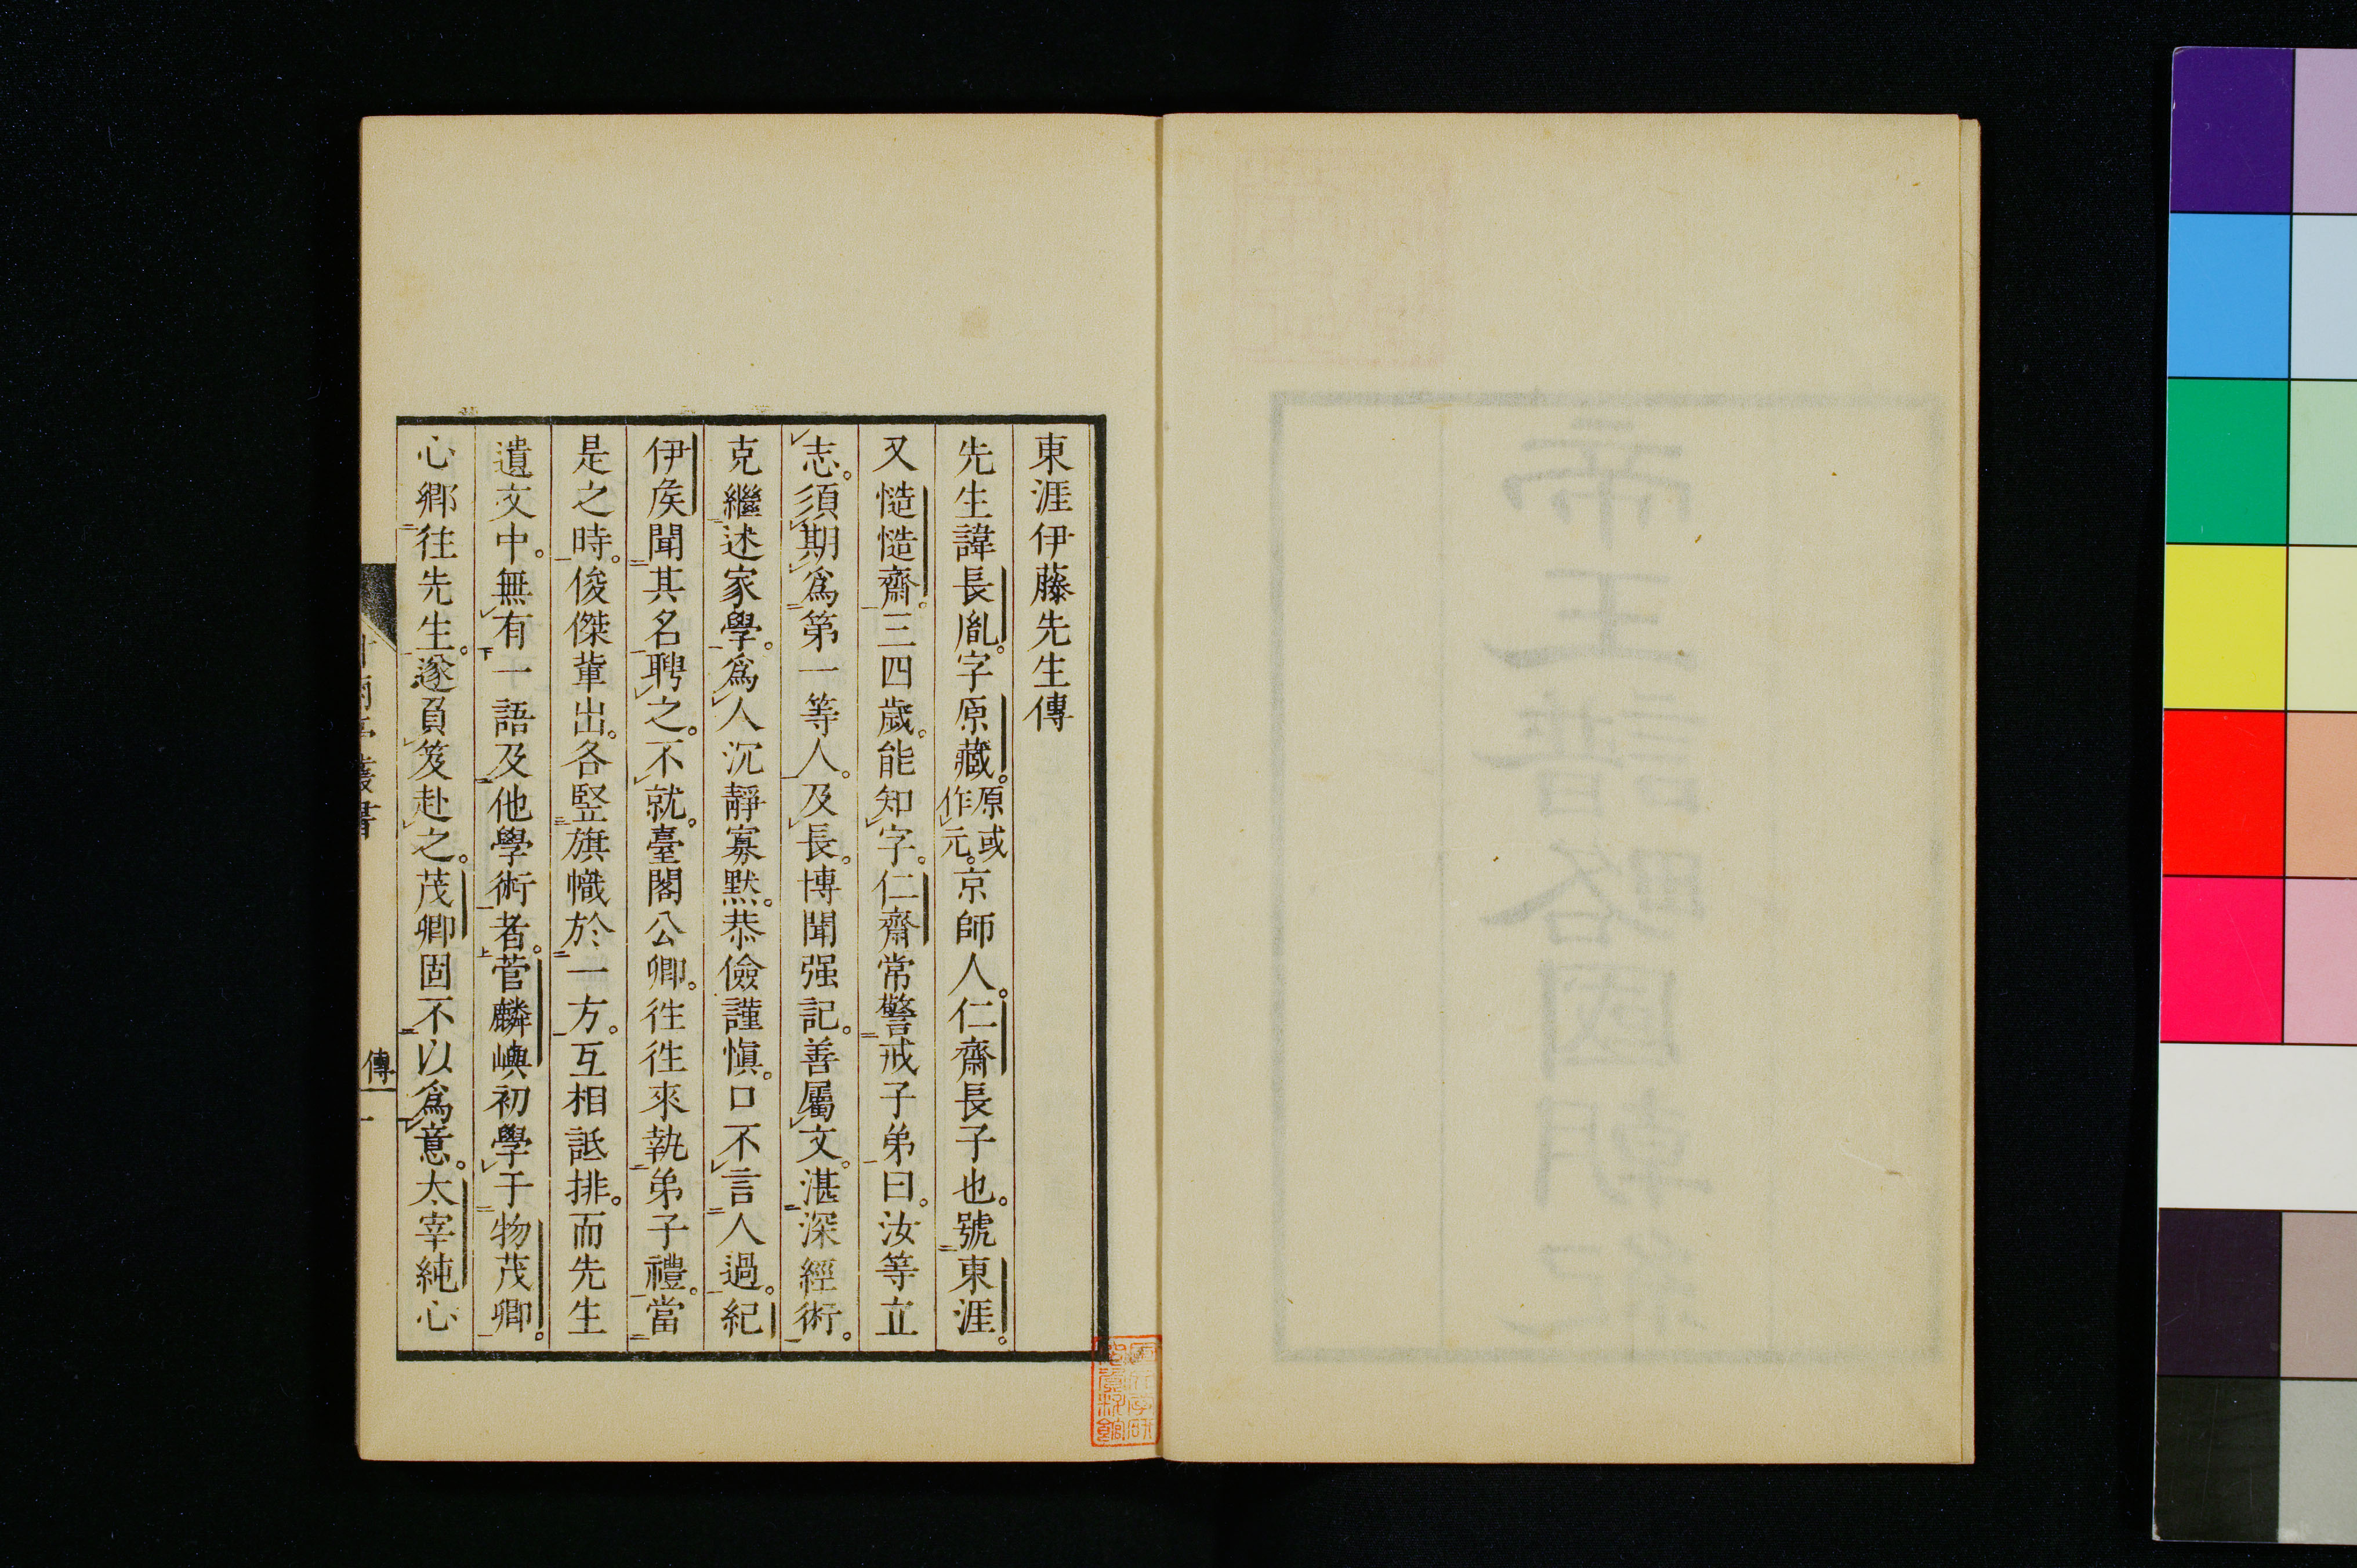 東涯伊藤先生傳
先生諱長胤。字原藏。原或作元。京師人。仁齋長子也。號東涯。
又慥慥齋。三四歲。能知字。仁齋常警戒子弟曰。汝等立
志。須期爲第一等人。及長。博聞强記。善屬文。湛深經術。
克繼述家學。爲人沉靜寡默。恭儉謹愼。口不言人過。紀
伊矦聞其名聘之。不就。臺閣公卿。徃徃來執弟子禮。當
是之時。俊傑輩出。各竪旗幟於一方。互相詆排。而先生
遺文中。無有一語及他學術者。菅麟嶼初學于物茂卿。
心鄉徃先生。遂負笈赴之。茂卿固不以爲意。太宰純心
甘雨亭叢書
傳
一